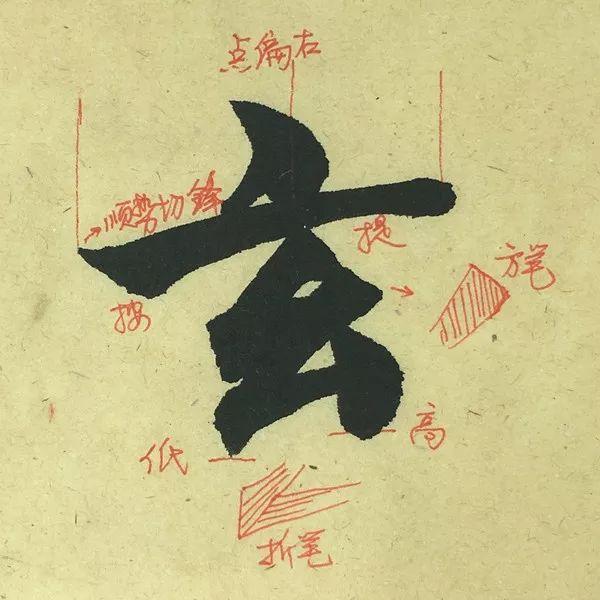 点偏右
顺势切锋
玄
提
按
方笔
低
高
折笔